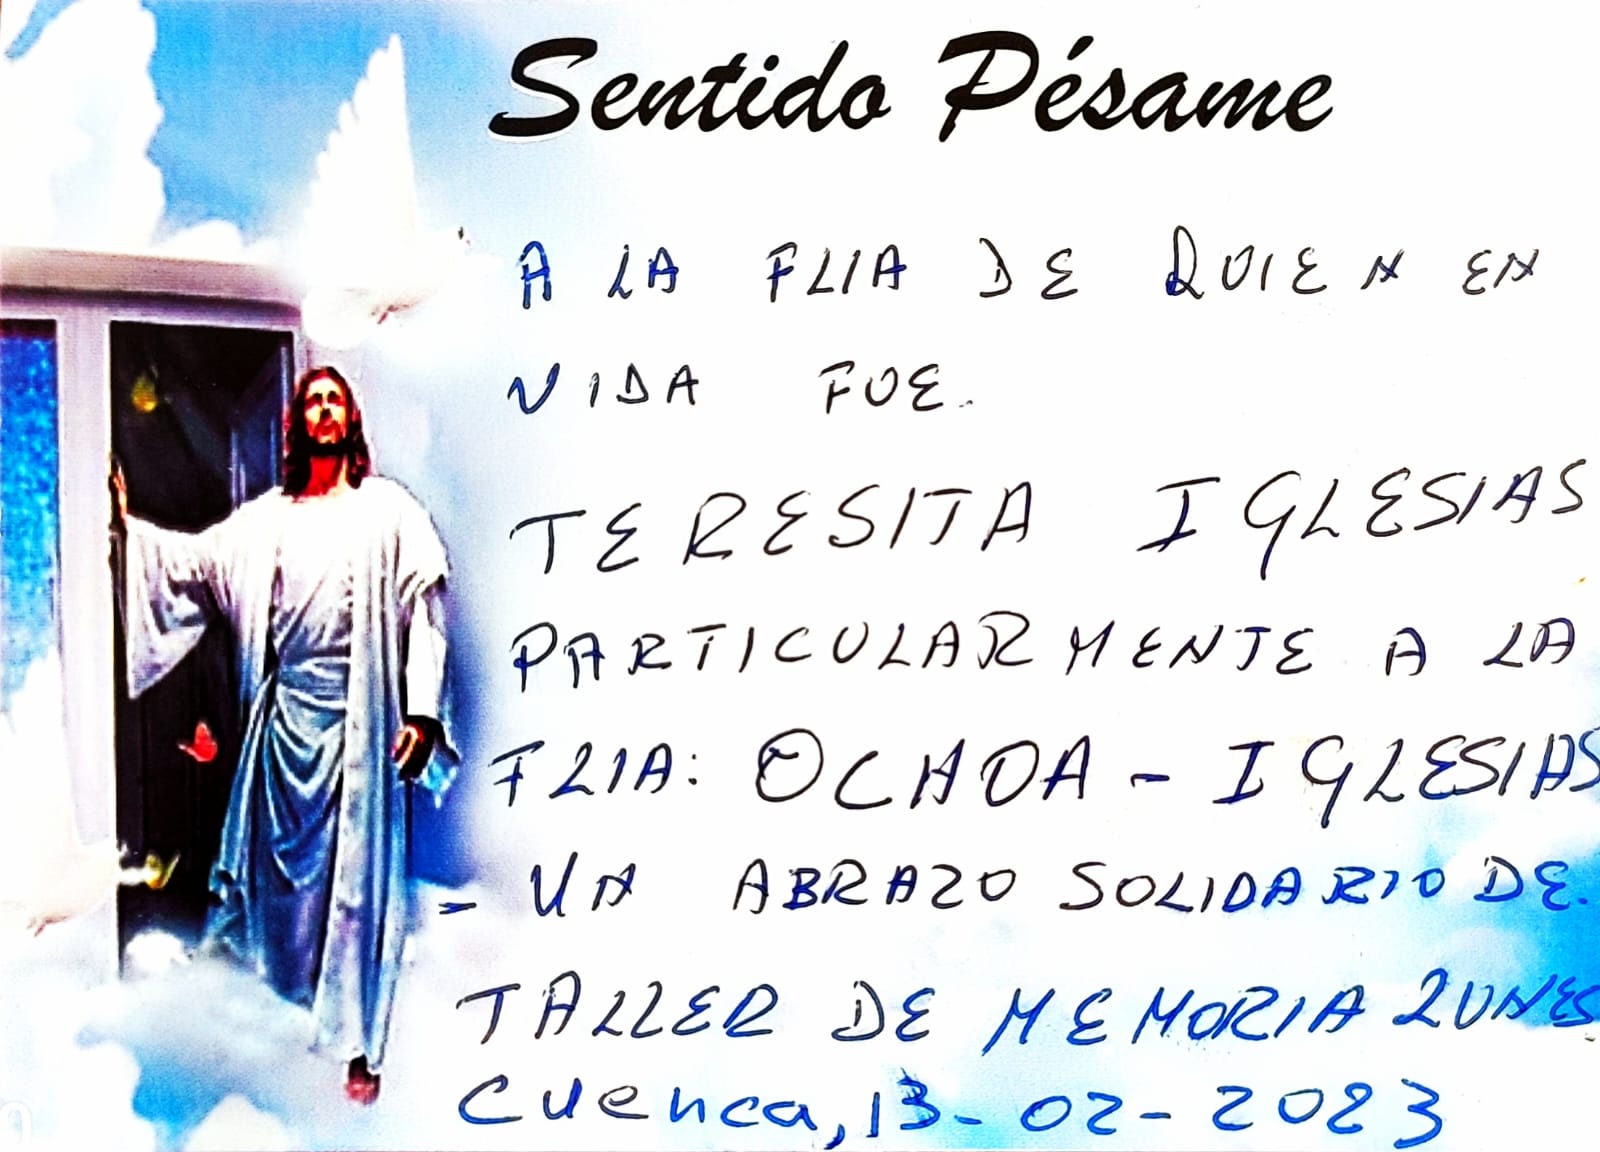 Sentido Pésame
A LA FLIA DE QUIEN EN
VIDA FUE.
TERESITA IGLESIAS
PARTICULARMENTE A LA
FLIA: OCHOA - IGLESIAS
- UN ABRAZO SOLIDARIO DE.
TALLER DE MEMORIA LUNES
Cuenca, 13-02-2023